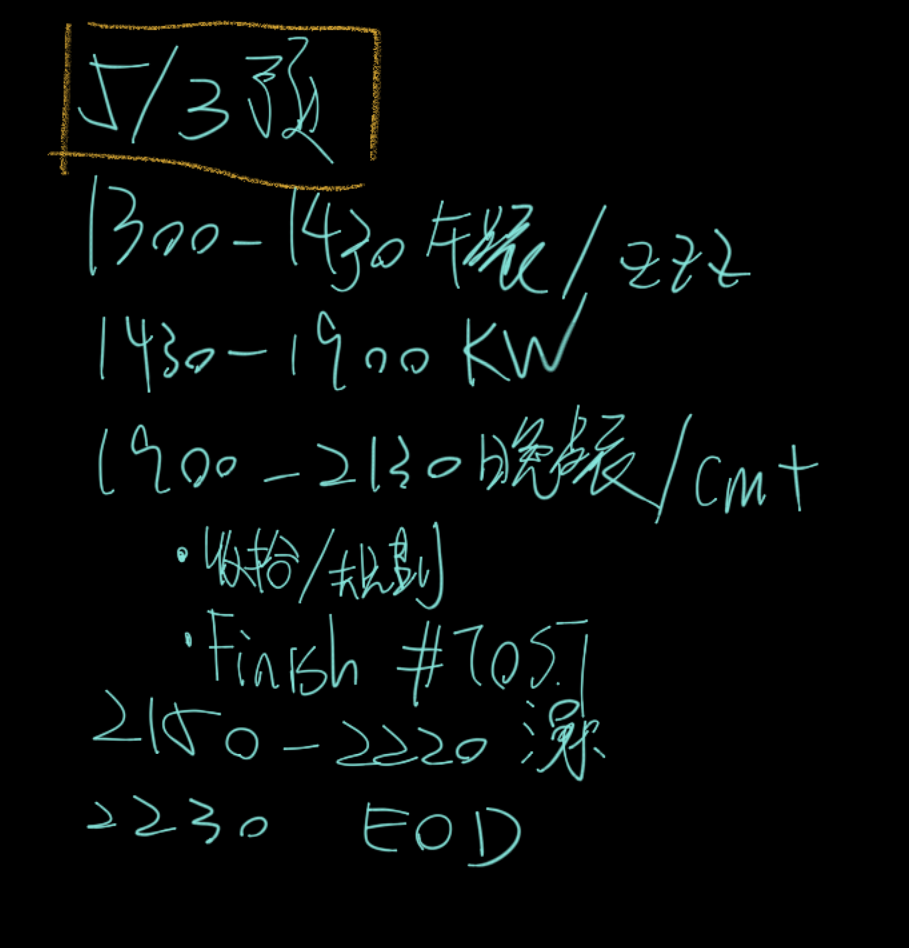 5/3 预
1300-1430 午饭/zzz
1430-1900 KW
1900-2130 晚饭/cmt
·收拾/规划
·Finish #7051
2150-2220 澡
2230 EOD